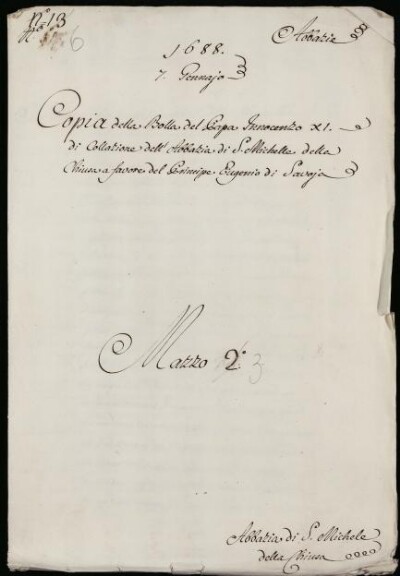 N.° 13
6
Abbazie
1688.
7. Gennajo
Copia della Bolla del Papa Innocenzo XI.
di Collazione dell'Abbazia di S. Michele della
Chiusa a favore del Principe Eugenio di Savoja
Mazzo 2° 3
Abbazia di S. Michele
della Chiusa